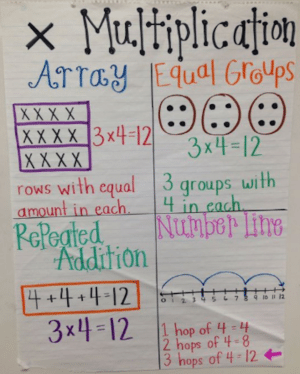 × Multiplication
Array
X X X X
X X X X
X X X X
3×4=12
rows with equal
amount in each.
Equal Groups
3×4=12
3 groups with
4 in each.
Repeated
Addition
4+4+4=12
3×4=12
Number Line
0 1 2 3 4 5 6 7 8 9 10 11 12
1 hop of 4=4
2 hops of 4=8
3 hops of 4=12